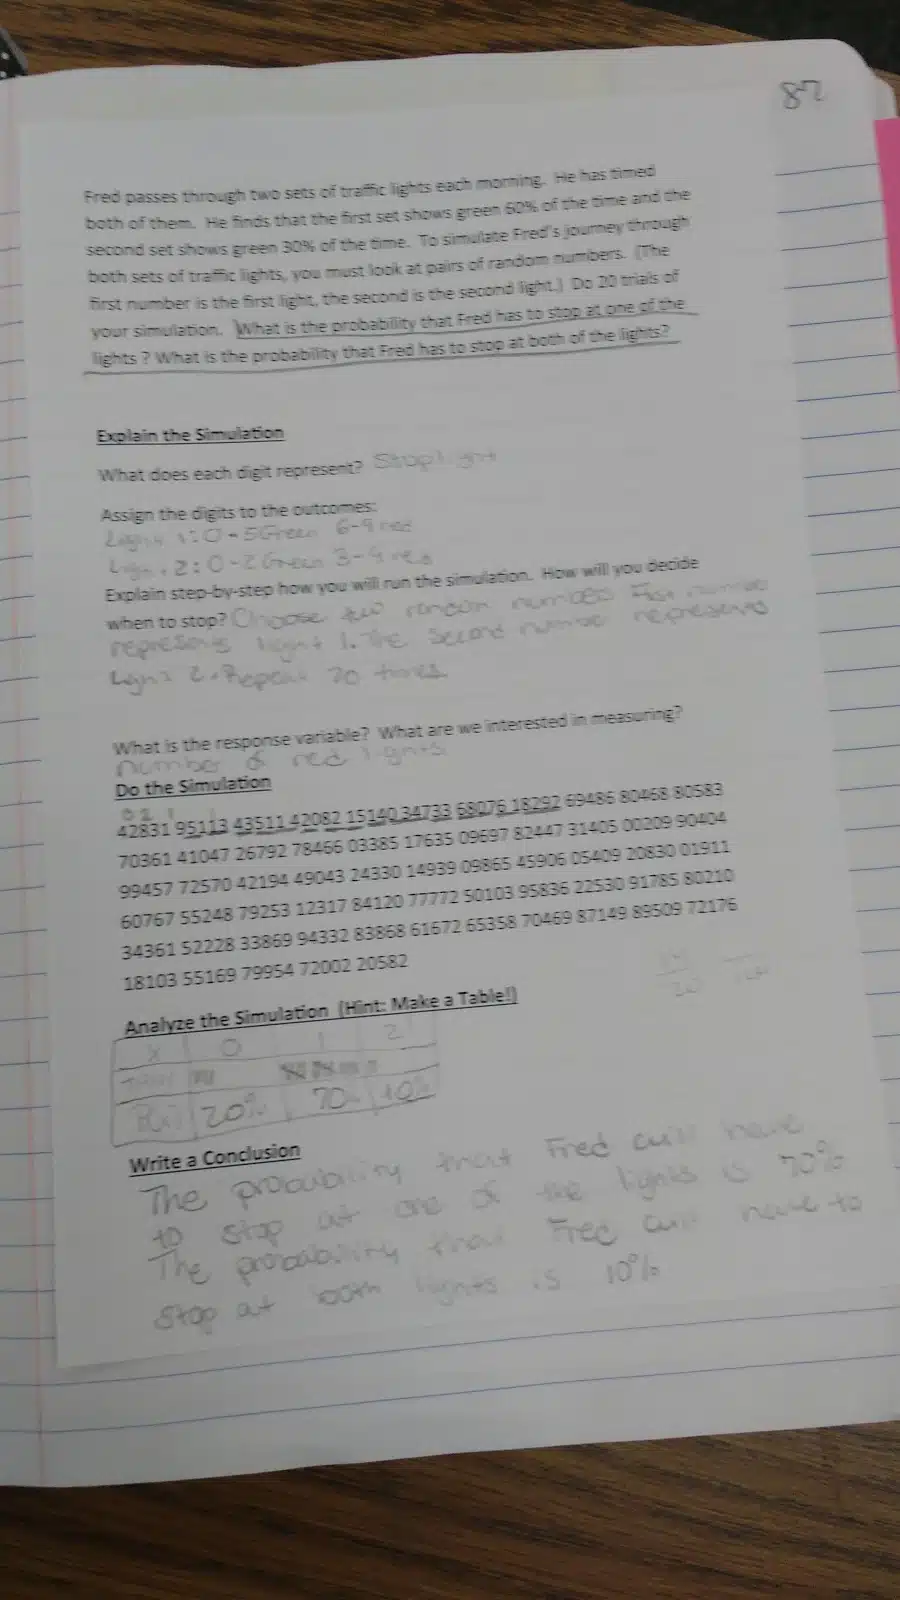 87
Fred passes through two sets of traffic lights each morning. He has timed
both of them. He finds that the first set shows green 60% of the time and the
second set shows green 30% of the time. To simulate Fred's journey through
both sets of traffic lights, you must look at pairs of random numbers. (The
first number is the first light, the second is the second light.) Do 20 trials of
your simulation. What is the probability that Fred has to stop at one of the
lights ? What is the probability that Fred has to stop at both of the lights?
Explain the Simulation
What does each digit represent? Stoplight
Assign the digits to the outcomes:
Light 1: 0-5 Green 6-9 red
Light 2: 0-2 Green 3-9 red
Explain step-by-step how you will run the simulation. How will you decide
when to stop? Choose two random numbers First number
represents light 1. The second number represents
Light 2. Repeat 20 times.
What is the response variable? What are we interested in measuring?
number of red lights
Do the Simulation
42831 95113 43511 42082 15140 34733 68076 18292 69486 80468 80583
70361 41047 26792 78466 03385 17635 09697 82447 31405 00209 90404
99457 72570 42194 49043 24330 14939 09865 45906 05409 20830 01911
60767 55248 79253 12317 84120 77772 50103 95836 22530 91785 80210
34361 52228 33869 94332 83868 61672 65358 70469 87149 89509 72176
18103 55169 79954 72002 20582
Analyze the Simulation (Hint: Make a Table!)
X 0 1 2
P(x) 20% 70% 10%
Write a Conclusion
The probability that Fred will have
to stop at one of the lights is 70%
The probability that Fred will have to
stop at both lights is 10%